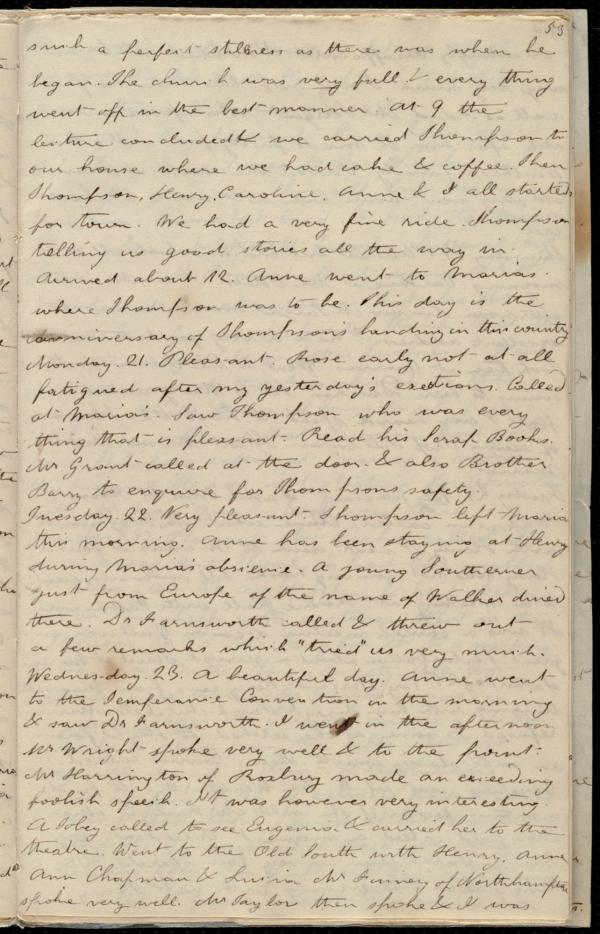 53
such a perfect stillness as there was when he
began. The church was very full & every thing
went off in the best manner. At 9 the
lecture concluded & we carried Thompson to
our house where we had cake & coffee. Then
Thompson, Henry, Caroline, Anne & I all started
for town. We had a very fine ride. Thompson
telling us good stories all the way in.
Arrived about 12. Anne went to Marias.
where Thompson was to be. This day is the
anniversary of Thompson's landing in this country
Monday. 21. Pleasant. Rose early not at all
fatigued after my yesterday's exertions. Called
at Maria's. Saw Thompson who was every
thing that is pleasant. Read his Scrap Books.
Mr Grant called at the door. & also Brother
Barry to enquire for Thompsons safety.
Tuesday. 22. Very pleasant. Thompson left Maria
this morning. Anne has been staying at Henry
during Maria's absence. A young Southerner
just from Europe of the name of Walker dined
there. Dr Farnsworth called & threw out
a few remarks which "tried" us very much.
Wednesday. 23. A beautiful day. Anne went
to the Temperance Convention in the morning
& saw Dr Farnsworth. I went in the afternoon
Mr Wright spoke very well & to the point.
Mr Harrington of Roxbury made an exceeding
foolish speech. It was however very interesting.
A Tobey called to see Eugenia & carried her to the
theatre. Went to the Old South with Henry, Anne
Ann Chapman & Lucia Mr Finney of Northampton
spoke very well. Mr Taylor then spoke & I was